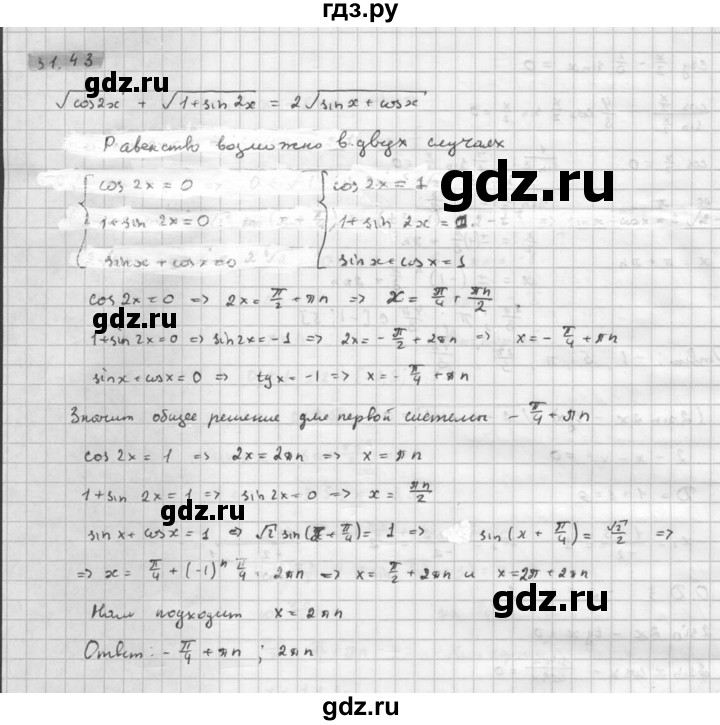 гдз.ру
31.43
gdz.ru
√cos2x + √1+sin2x = 2√sinx+cosx
Равенство возможно в двух случаях
gdz.ru
{ cos 2x = 0 { cos 2x = 1
1+sin 2x = 0 1+sin 2x = 1
sinx + cosx = 0 sinx + cosx = 1
cos2x = 0 => 2x = π/2 + πn => x = π/4 + πn/2 ;
gdz.ru
1+sin2x = 0 => sin2x = -1 => 2x = -π/2 + 2πn => x = -π/4 + πn
sinx + cosx = 0 => tgx = -1 => x = -π/4 + πn
Значит общее решение для первой системы -π/4 + πn
cos 2x = 1 => 2x = 2πn => x = πn
1+sin 2x = 1 => sin 2x = 0 => x = πn/2
gdz.ru
sin x + cos x = 1 => √2 sin(x + π/4) = 1 => sin(x + π/4) = √2/2 =>
=> x = π/4 + (-1)ⁿ π/4 + 2πn => x = π/2 + 2πn и x = 2π + 2πn
gdz.ru
Нам подходит x = 2πn
Ответ: -π/4 + πn ; 2πn
gdz.ru
гдз.ру